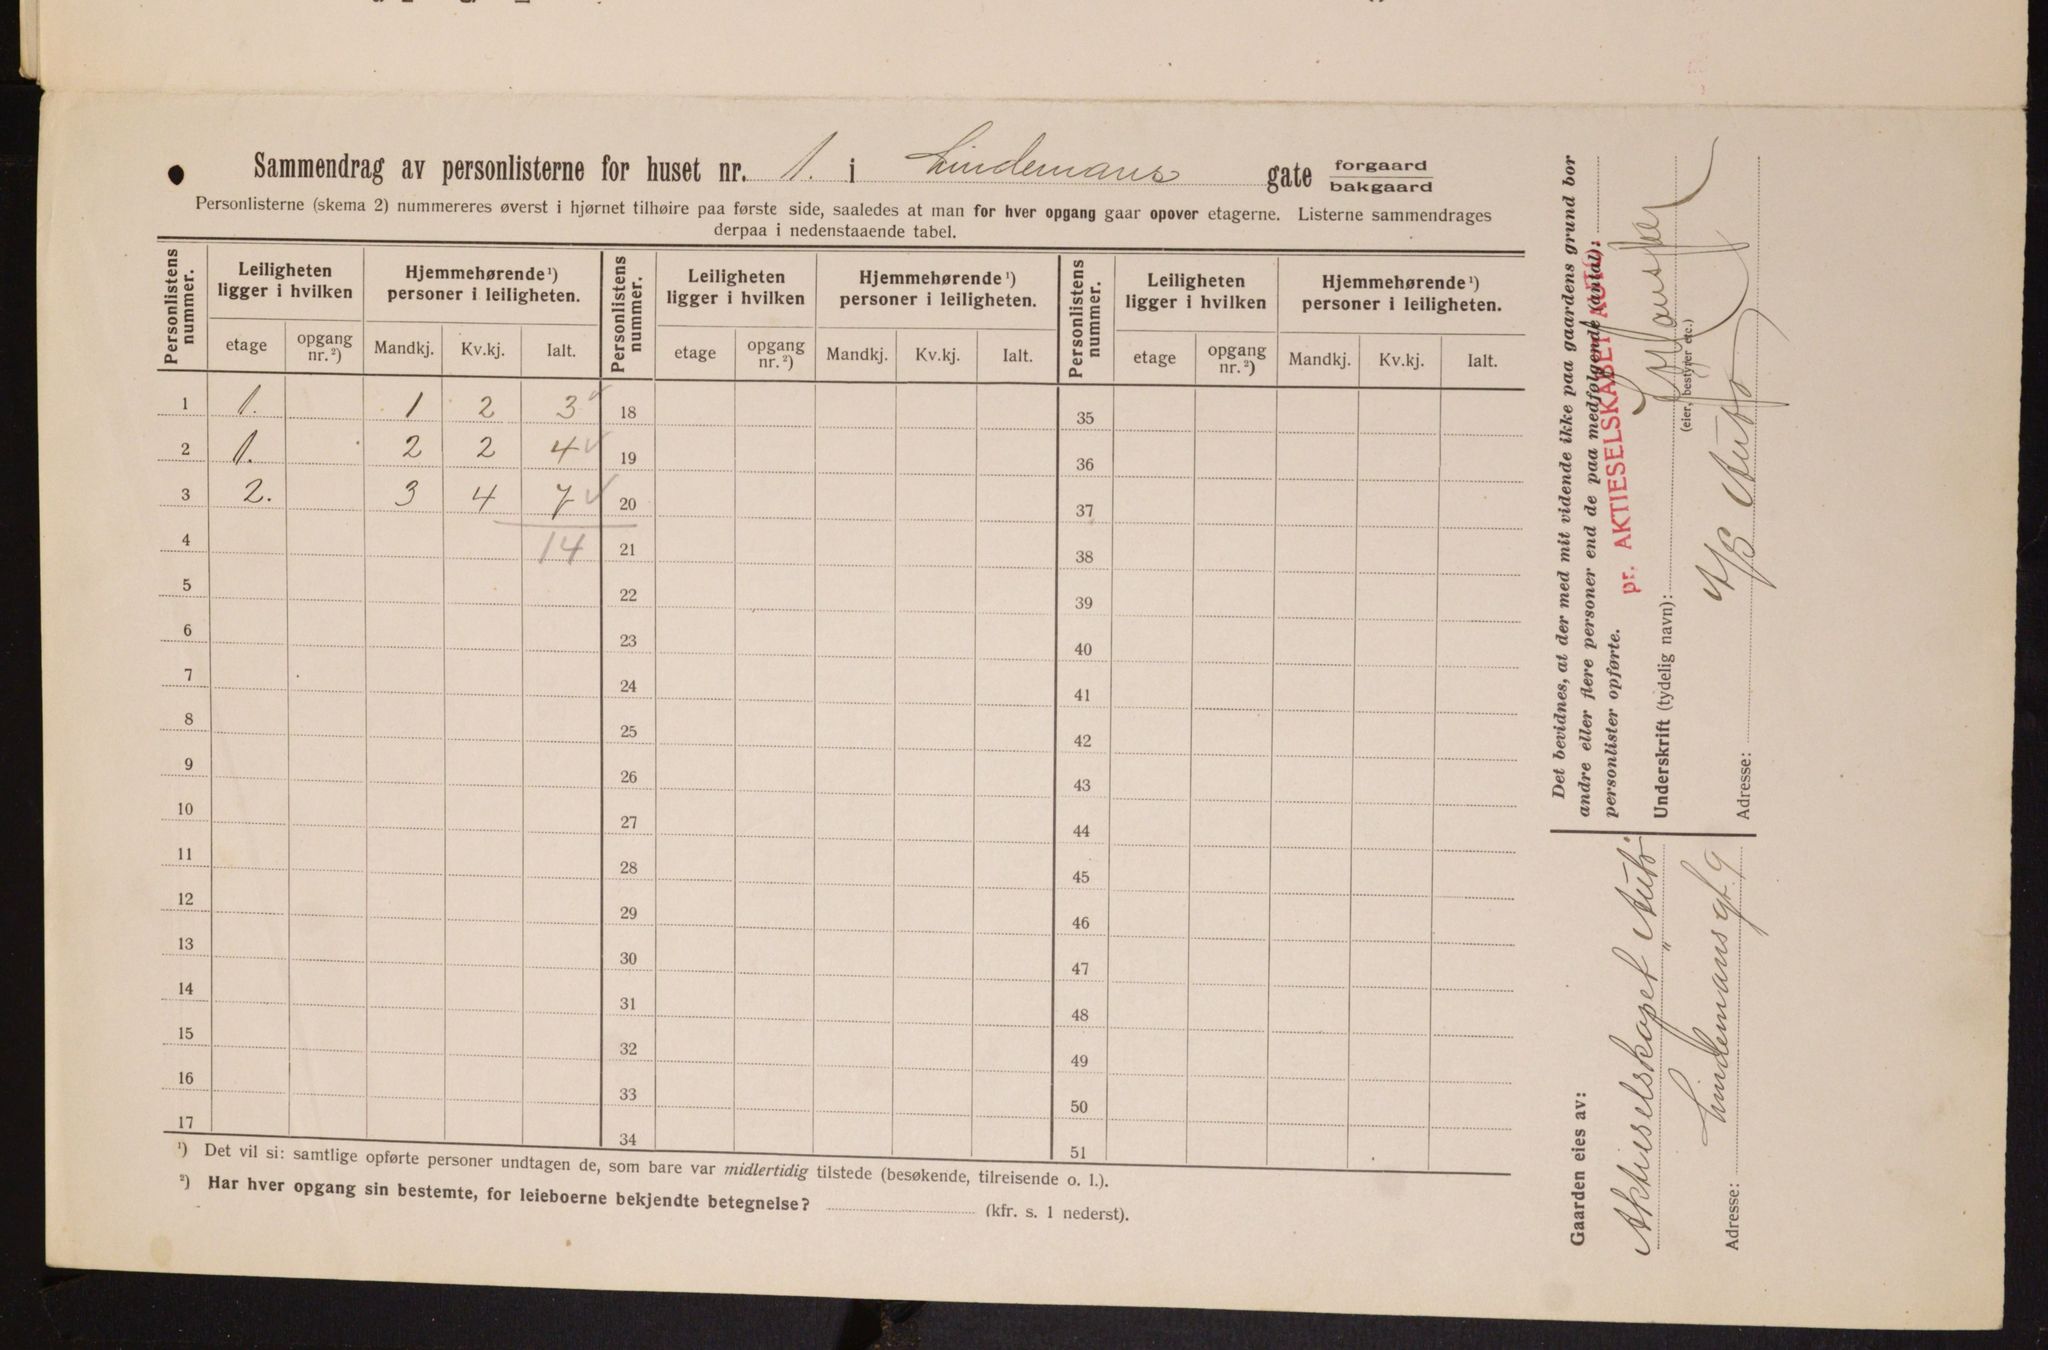 Sammendrag av personlisterne for huset nr. 1. i Lindemans gate forgaard bakgaard
Personlisterne (skema 2) nummereres øverst i hjørnet tilhøire paa første side, saaledes at man for hver opgang gaar opover etagerne. Listerne sammendrages
derpaa i nedenstaaende tabel.
Personlistens nummer. Leiligheten ligger i hvilken Hjemmehørende¹) personer i leiligheten. Personlistens nummer. Leiligheten ligger i hvilken Hjemmehørende¹) personer i leiligheten. Personlistens nummer. Leiligheten ligger i hvilken Hjemmehørende¹) personer i leiligheten.
etage opgang nr.²) Mandkj. Kv.kj. Ialt. etage opgang nr.²) Mandkj. Kv.kj. Ialt. etage opgang nr.²) Mandkj. Kv.kj. Ialt.
1 1. 1 2 3 18 35
2 1. 2 2 4 19 36
3 2. 3 4 7 20 37
4 14 21 38
5 22 39
6 23 40
7 24 41
8 25 42
9 26 43
10 27 44
11 28 45
12 29 46
13 30 47
14 31 48
15 32 49
16 33 50
17 34 51
¹) Det vil si: samtlige opførte personer undtagen de, som bare var midlertidig tilstede (besøkende, tilreisende o. l.).
²) Har hver opgang sin bestemte, for leieboerne bekjendte betegnelse? (kfr. s. 1 nederst).
Det bevidnes, at der med mit vidende ikke paa gaardens grund bor
andre eller flere personer end de paa medfølgende (antal):
personlister opførte.
pr. AKTIESELSKABET AUTO
Underskrift (tydelig navn):
(eier, bestyrer etc.)
A/S Auto
Adresse:
Gaarden eies av:
Aktieselskapet „Auto"
Adresse: Lindemans gt. 9